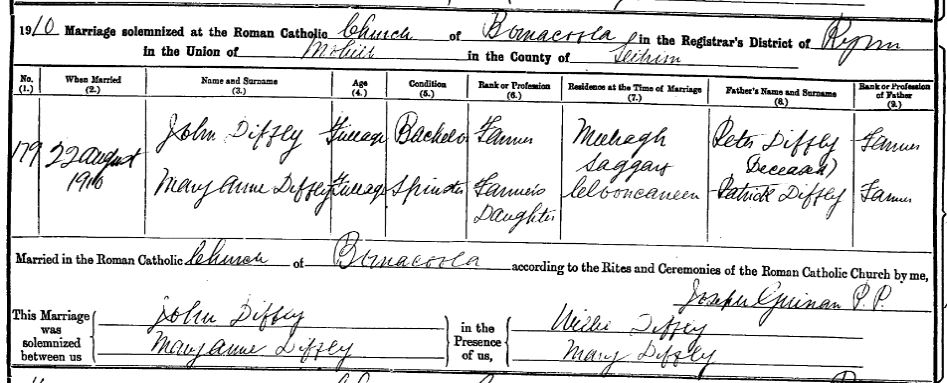 1910 Marriage solemnized at the Roman Catholic Church of Bornacoola in the Registrar's District of Rynn
in the Union of Mohill in the County of Leitrim
No. (1.) When Married (2.) Name and Surname (3.) Age (4.) Condition (5.) Rank or Profession (6.) Residence at the Time of Marriage (7.) Father's Name and Surname (8.) Rank or Profession of Father (9.)
179 22 August 1910 John Diffley Full age Bachelor Farmer Peter Diffley (Deceased) Farmer
Mary Anne Diffley Full age Spinster Farmers Daughter Clooncaneen Patrick Diffley Farmer
Married in the Roman Catholic Church of Bornacoola according to the Rites and Ceremonies of the Roman Catholic Church by me,
Joseph Guinan P.P.
This Marriage was solemnized between us
John Diffley
Mary Anne Diffley
in the Presence of us,
Willie Diffley
Mary Diffley